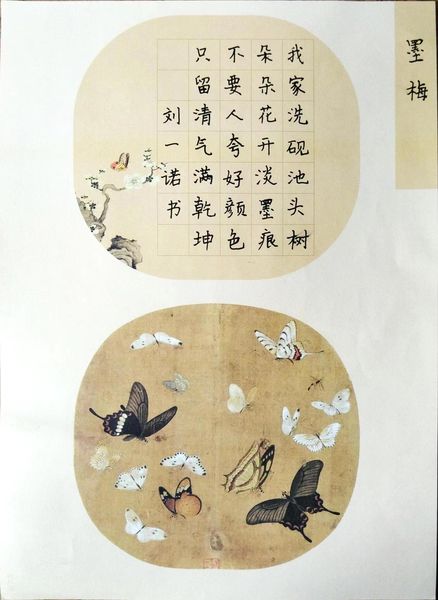 墨梅
我家洗砚池头树
朵朵花开淡墨痕
不要人夸好颜色
只留清气满乾坤
刘一诺书